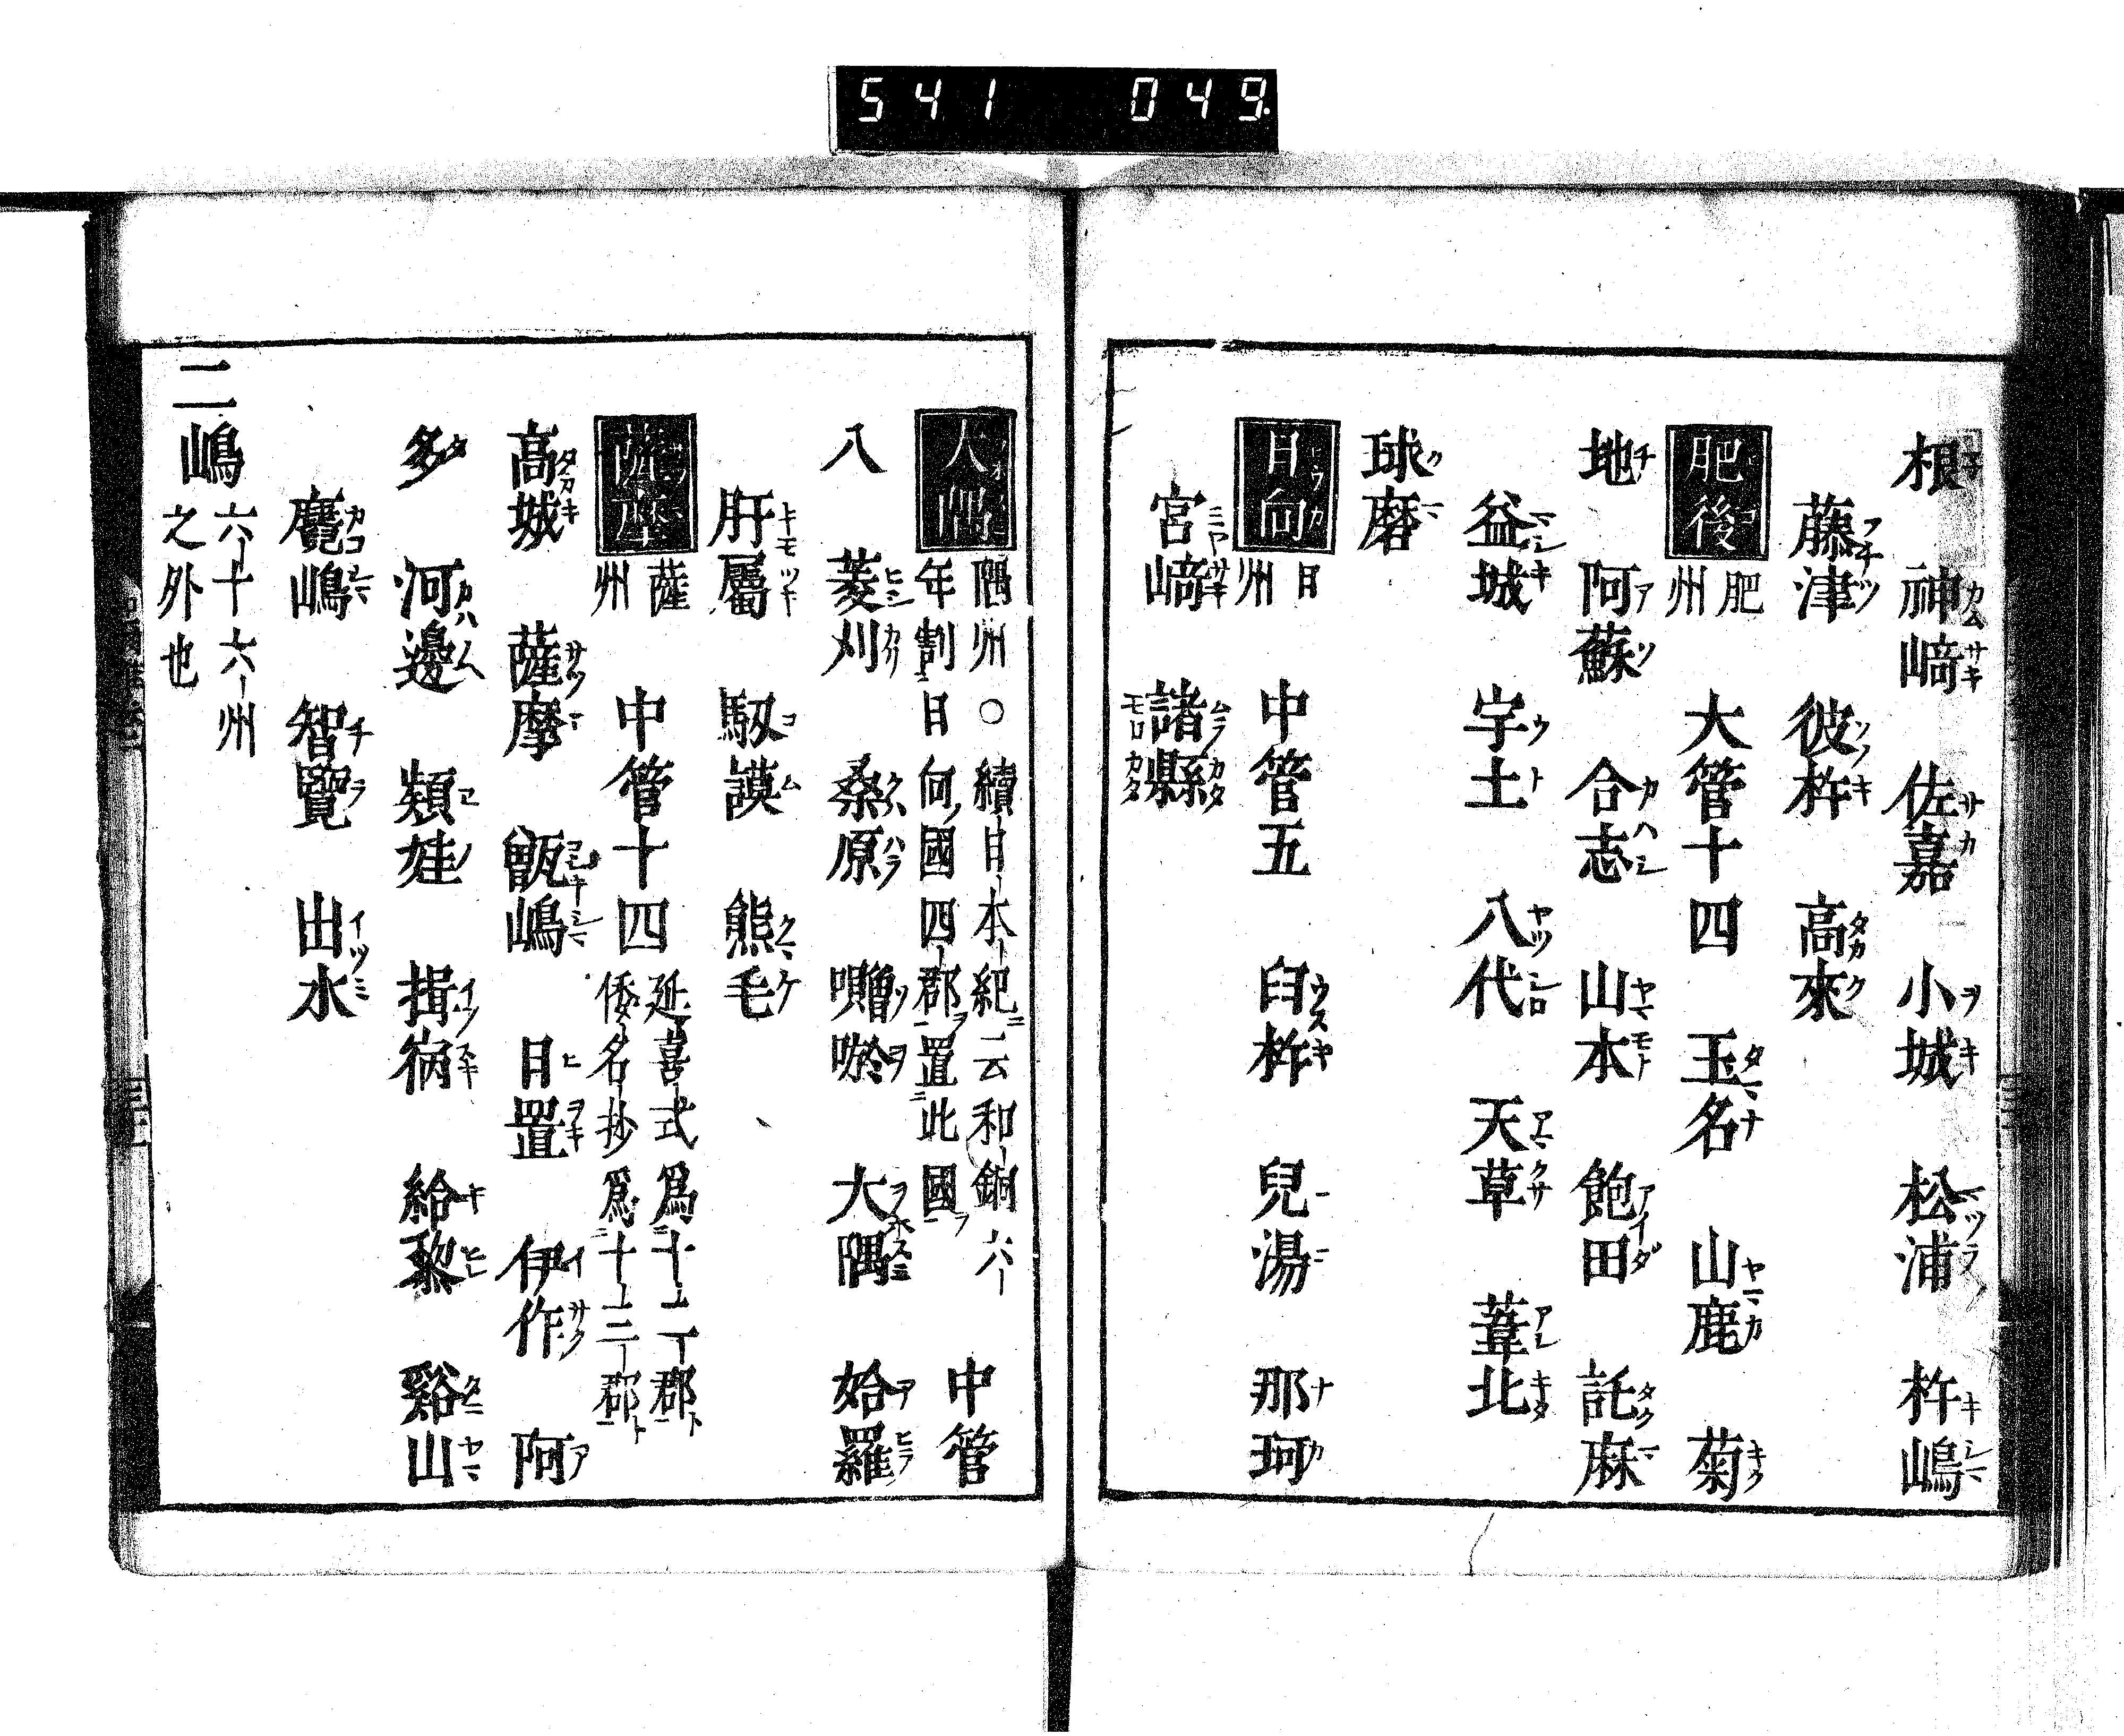 541 049
根 神﨑 佐嘉 小城 松浦 杵嶋
藤津 彼杵 高來
肥後 肥州 大管十四 玉名 山鹿 菊
地 阿蘇 合志 山本 飽田 託麻
益城 宇土 八代 天草 葦北
球磨
日向 日州 中管五 臼杵 兒湯 那珂
宮﨑 諸縣
大隅 隅州○續日本紀云和銅六年割日向國四郡置此國 中管
八 菱刈 桑原 囎唹 大隅 姶羅
肝屬 馭謨 熊毛
薩摩 薩州 中管十四 延喜式爲十二郡倭名抄爲十三郡
高城 薩摩 甑嶋 日置 伊作 阿
多 河邊 頴娃 揖宿 給黎 谿山
麑嶋 智覽 出水
二嶋 六十六州之外也